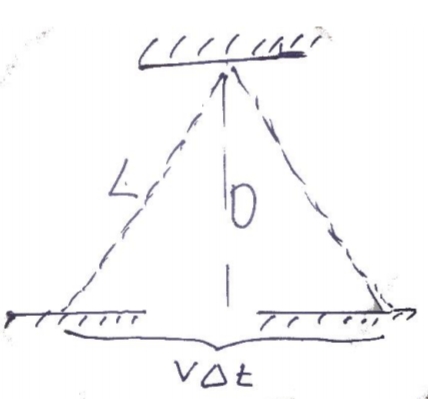 L
D
V Δ t